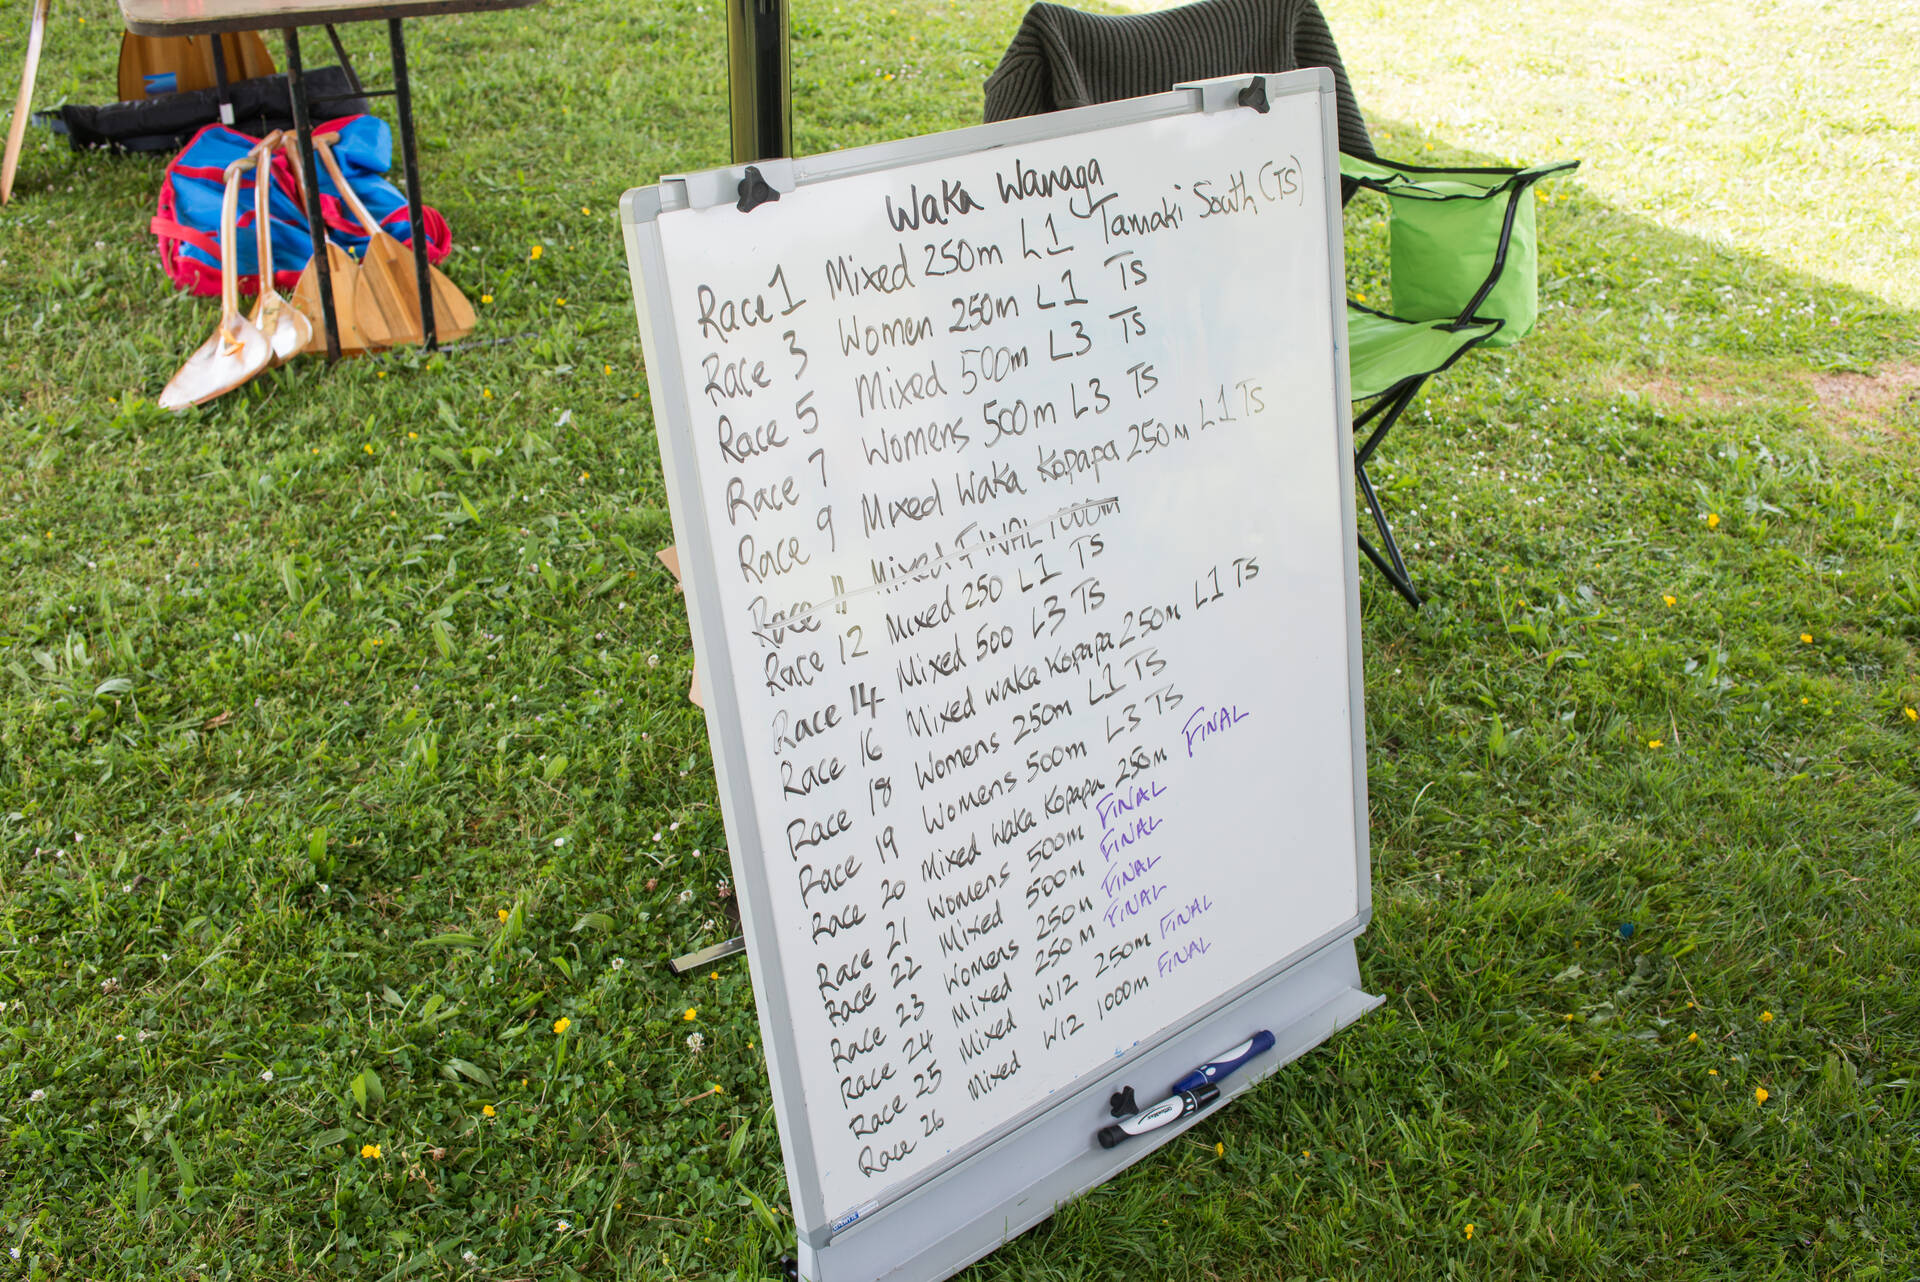 Waka Wanaga
Race 1 Mixed 250m L1 Tamaki South (TS)
Race 3 Women 250m L1 TS
Race 5 Mixed 500m L3 TS
Race 7 Womens 500m L3 TS
Race 9 Mixed Waka Kopapa 250m L1 TS
Race 11 Mixed FINAL 1000m
Race 12 Mixed 250 L1 TS
Race 14 Mixed 500 L3 TS
Race 16 Mixed waka Kopapa 250m L1 TS
Race 18 Womens 250m L1 TS
Race 19 Womens 500m L3 TS
Race 20 Mixed Waka Kopapa 250m FINAL
Race 21 Womens 500m FINAL
Race 22 Mixed 500m FINAL
Race 23 Womens 250m FINAL
Race 24 Mixed 250m FINAL
Race 25 Mixed W12 250m FINAL
Race 26 Mixed W12 1000m FINAL
OfficeMax